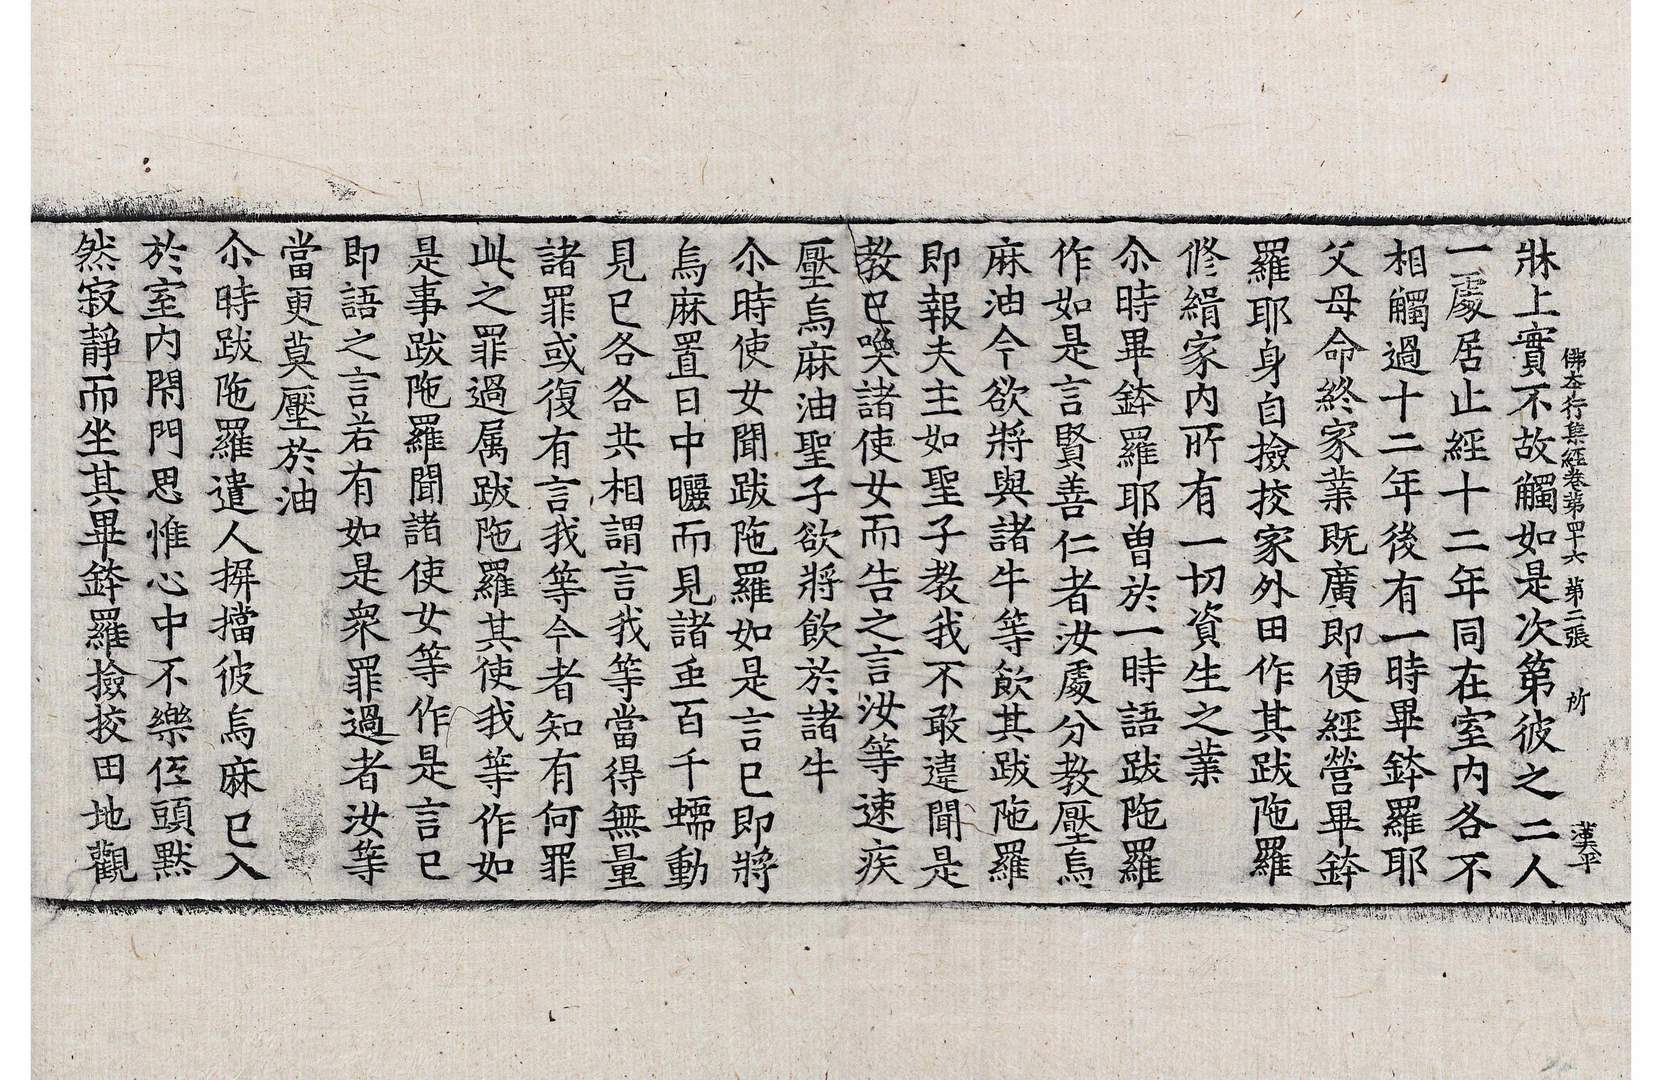 佛本行集經卷第四十六 第二張 所 漢平
牀上實不故觸如是次第彼之二人
一處居止經十二年同在室内各不
相觸過十二年後有一時畢鉢羅耶
父母命終家業既廣即便經營畢鉢
羅耶身自撿挍家外田作其跋陁羅
修緝家内所有一切資生之業
尒時畢鉢羅耶曽於一時語跋陁羅
作如是言賢善仁者汝處分教壓烏
麻油今欲將與諸牛等飲其跋陁羅
即報夫主如聖子教我不敢違聞是
教已喚諸使女而告之言汝等速疾
壓烏麻油聖子欲將飲於諸牛
尒時使女聞跋陁羅如是言已即將
烏麻置日中曬而見諸虫百千蠕動
見已各各共相謂言我等當得無量
諸罪或復有言我等今者知有何罪
此之罪過属跋陁羅其使我等作如
是事跋陁羅聞諸使女等作是言已
即語之言若有如是衆罪過者汝等
當更莫壓於油
尒時跋陁羅遣人摒擋彼烏麻已入
於室内閇門思惟心中不樂伍頭黙
然寂靜而坐其畢鉢羅撿挍田地觀